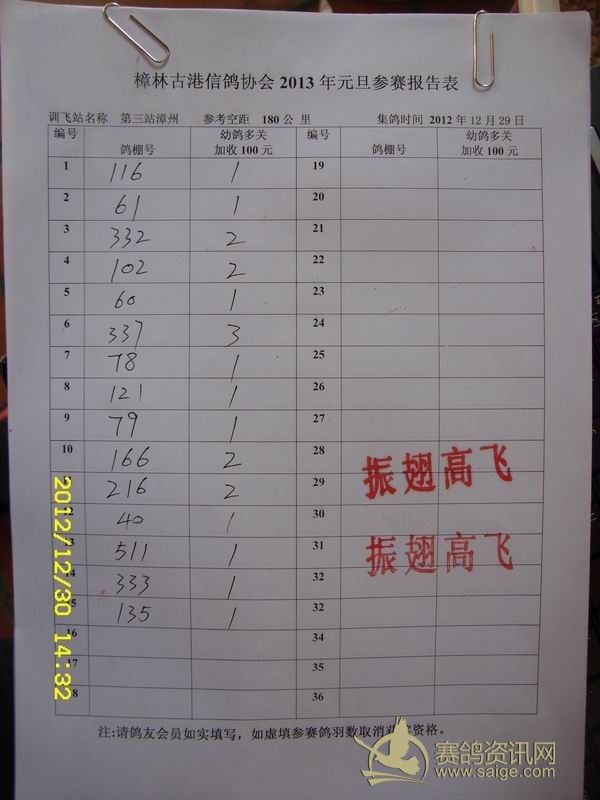 樟林古港信鸽协会 2013 年元旦参赛报告表
训飞站名称 第三站漳州 参考空距 180 公 里 集鸽时间 2012 年 12 月 29 日
编号 鸽棚号 幼鸽多关加收 100 元 编号 鸽棚号 幼鸽多关加收 100 元
1 116 1 19
2 61 1 20
3 332 2 21
4 102 2 22
5 60 1 23
6 337 3 24
7 78 1 25
8 121 1 26
9 79 1 27
10 166 2 28
216 2 29
振翅高飞
12 40 1 30
13 511 1 31
振翅高飞
14 333 1 32
15 135 1 32
16 34
17 35
18 36
注:请鸽友会员如实填写，如虚填参赛鸽羽数取消资格。
2012/12/30 14:32
赛鸽资讯网
www.saige.com